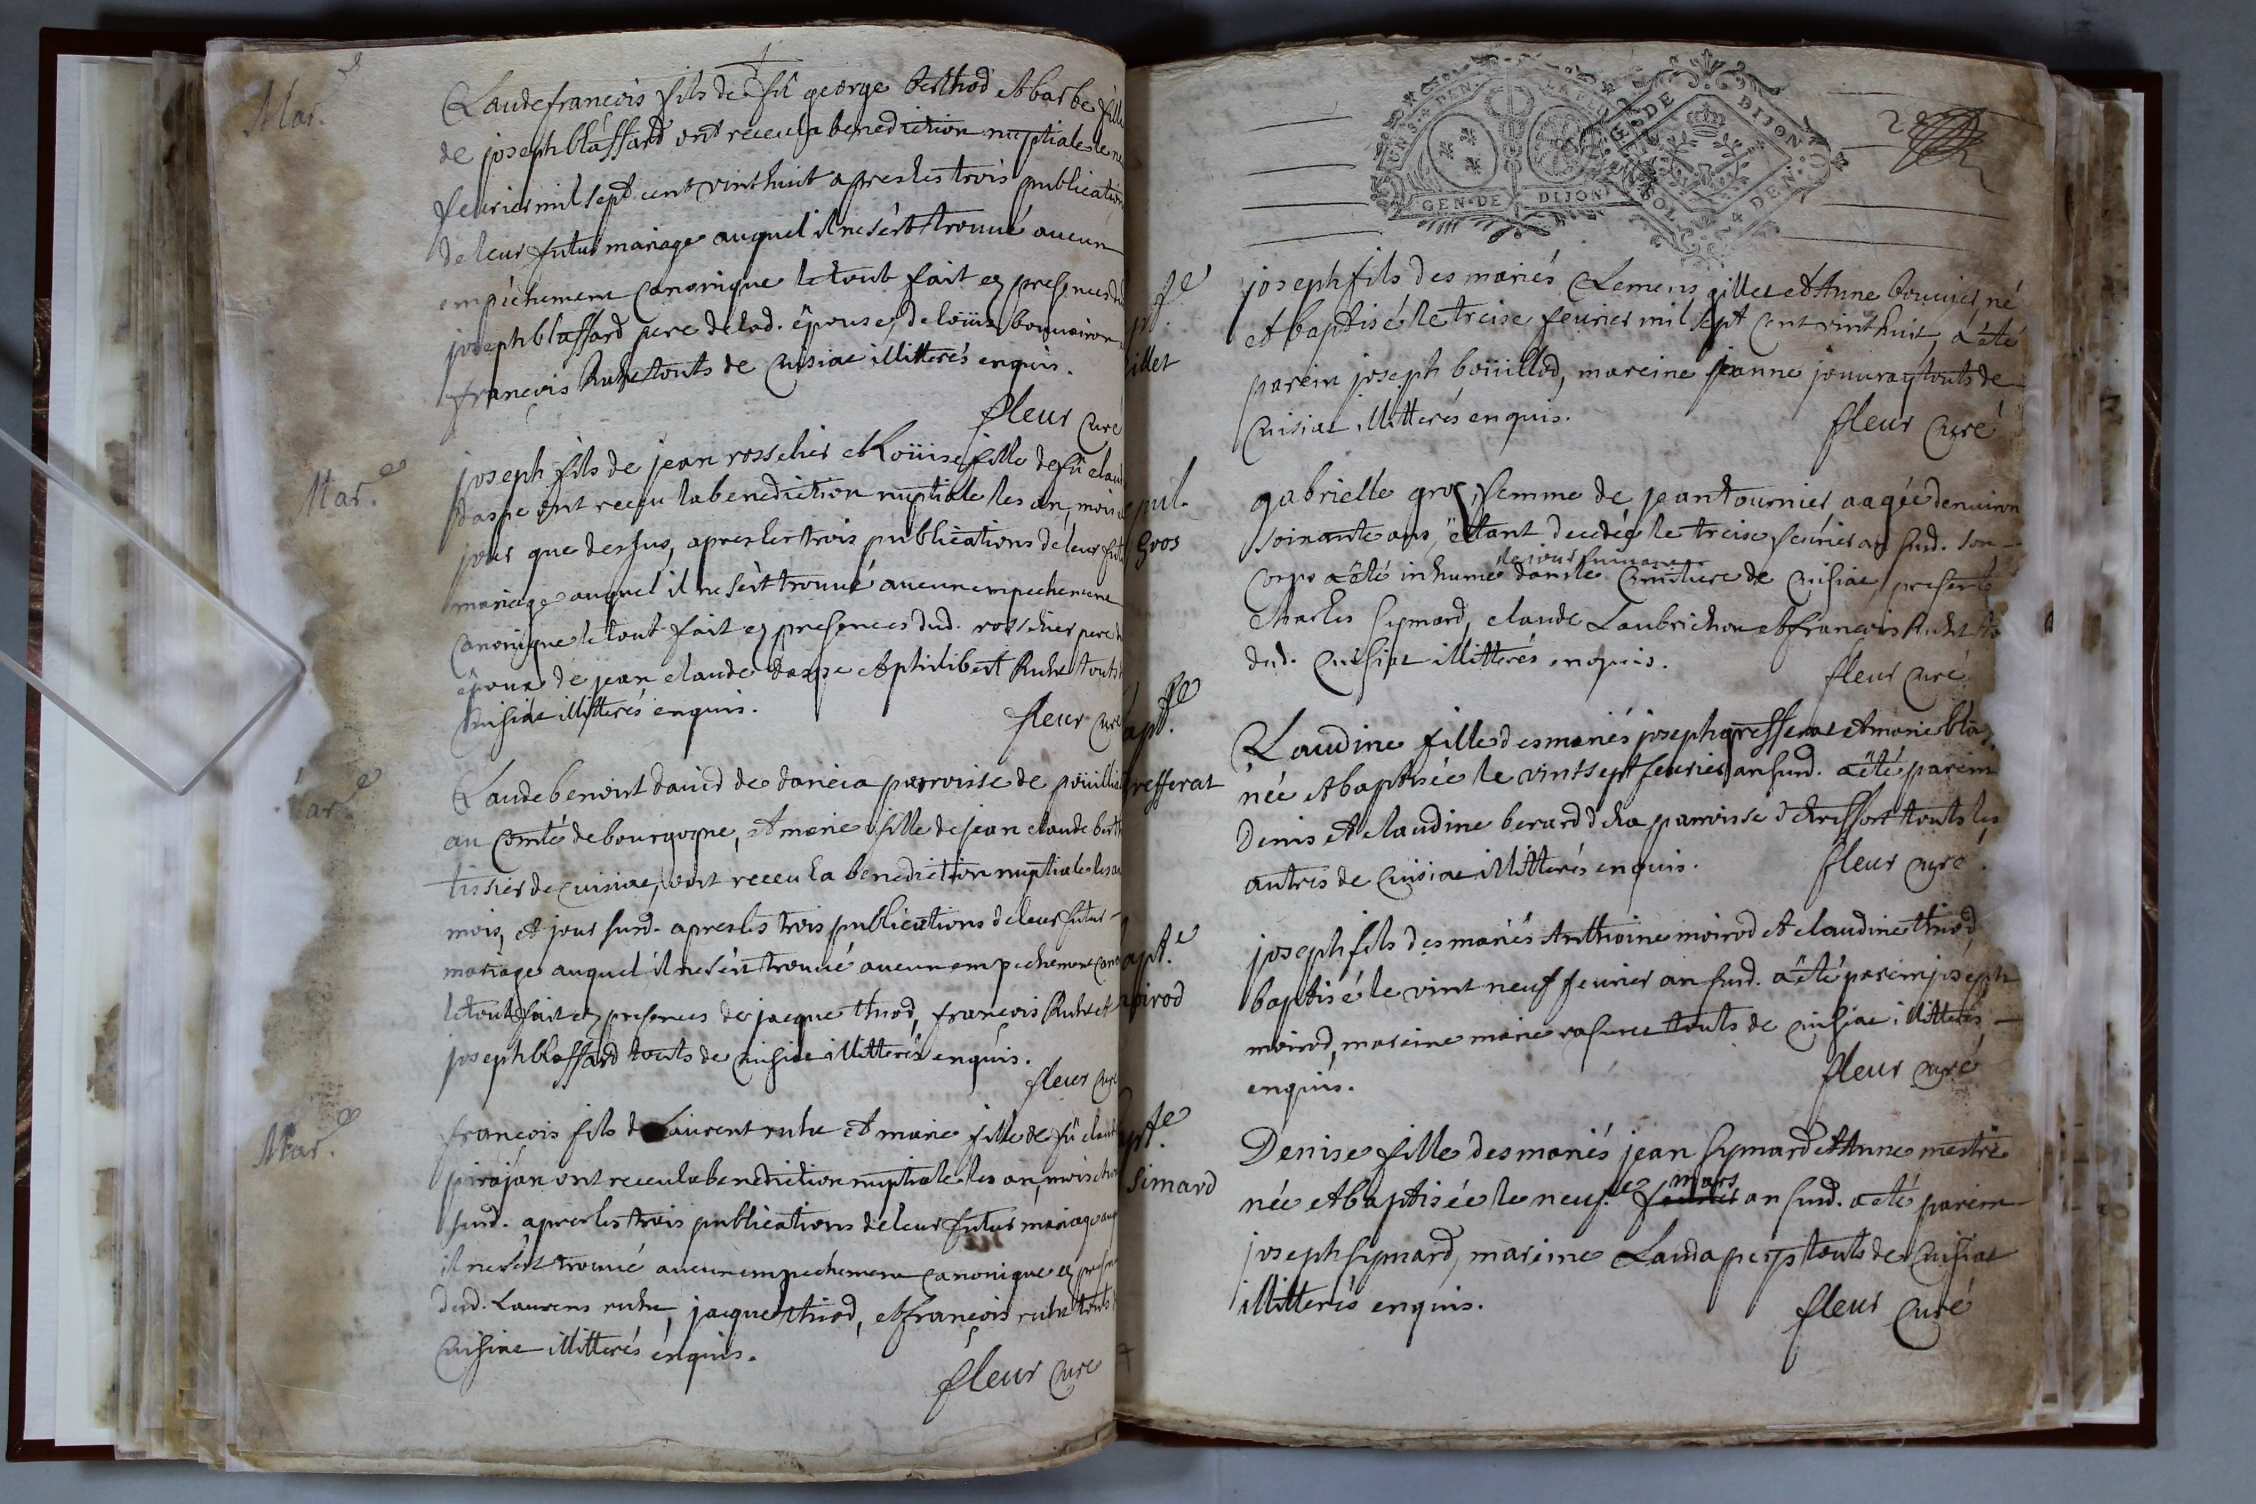 Mar.e
Claude francois fils de fû george berthod et barbe fille
de joseph blaffard ont receu la benediction nuptiale le
feurier mil sept cent vint huit apres les trois publications
de leur futur mariage auquel il ne s'êt trouué aucun
empéchement canonique le tout fait en presences dud.
joseph blaffard pere de lad. épouse, de loüis bonnairon
francois Ruhe touts de Cuisiae illitterés enquis.
fleur Curé
Mar.e
joseph fils de jean rosselier et Loüise fille de fû claude
daspe ont receu la benediction nuptiale les an, mois et
jour que dessus, apres les trois publications de leur futur
mariage auquel il ne s'êt trouué aucun empechement
Canonique le tout fait en presences dud. rosselier pere de
époux de jean claude daspe et philibert Ruhe touts
Cuisiae illitterés enquis.
fleur curé
Mar.e
Claude benoist dauid de daneia parroisse de poüillia
au Comté de bourgogne, et marie fille de jean claude berth
tissier de cuisiae, ont receu la benediction nuptiale les an
mois, et jour susd. apres les trois publications de leur futur
mariage auquel il ne s'êt trouué aucun empechement cano
le tout fait en presences de jacque thiod, francois Ruhe et
joseph blaffard touts de Cuisiae illitterés enquis.
fleur curé
Mar.e
francois fils de Laurent ruhe et marie fille de fû claude
pirajan ont receu la benediction nuptiale les an, mois et jour
susd. apres les trois publications de leur futur mariage auquel
il ne s'êt trouué aucun empechement canonique en presences
dud. Laurens ruhe, jacque thiod, et francois ruhe touts
Cuisiae illitterés enquis.
fleur curé
GEN. DE DIJON
GEN. DE DIJON
SOL
4 DEN.
pt.e
illet
joseph fils des mariés Clemens gillet et Anne bouuier, né
et baptisé le treise feurier mil sept cent vint huit, a été
parein joseph boüillod, mareine jeanne jouuray touts de
Cuisiae illitterés enquis.
fleur Curé
epul.
Gros
gabrielle gros, femme de jean tournier aagée denuiron
soixante ans, êtant decedée le treise feurier an susd. son
le jour suiuant
corps a été inhumé dans le Cimetiere de Cuisiae, presents
Charles Symard, claude Laubrichon et francois Ruhe
dud. Cuisiae illitterés enquis.
fleur curé
apt.e
refferat
Claudine fille des mariés joseph grefferat et marie bla
née et baptisée le vint sept feurier an susd. a été parein
Denis et claudine berard de la parroisse de treffort touts les
autres de Cuisiae illitterés enquis.
fleur curé
apt.e
moirod
joseph fils des mariés Anthoine moirod et claudine thiod,
baptisé le vint neuf feurier an susd. a été parein joseph
moirod, mareine marie rasurel touts de Cuisiae illitterés
enquis.
fleur curé
apt.e
Simard
Denise fille des mariés jean Symard et Anne mestre
mars
née et baptisée le neuf.e feurier an susd. a été parein
joseph Symard, mareine Clauda perss touts de Cuisiae
illitterés enquis.
fleur Curé